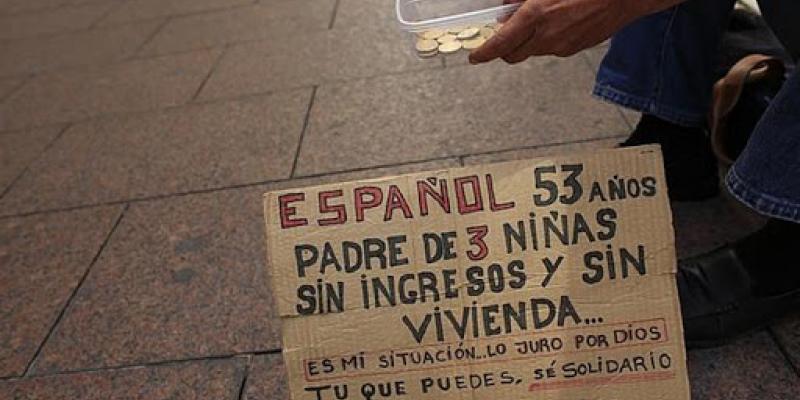 ESPAÑOL 53 AÑOS
PADRE DE 3 NIÑAS
SIN INGRESOS Y SIN
VIVIENDA...
ES MI SITUACIÓN...LO JURO POR DIOS
TU QUE PUEDES, SÉ SOLIDARIO